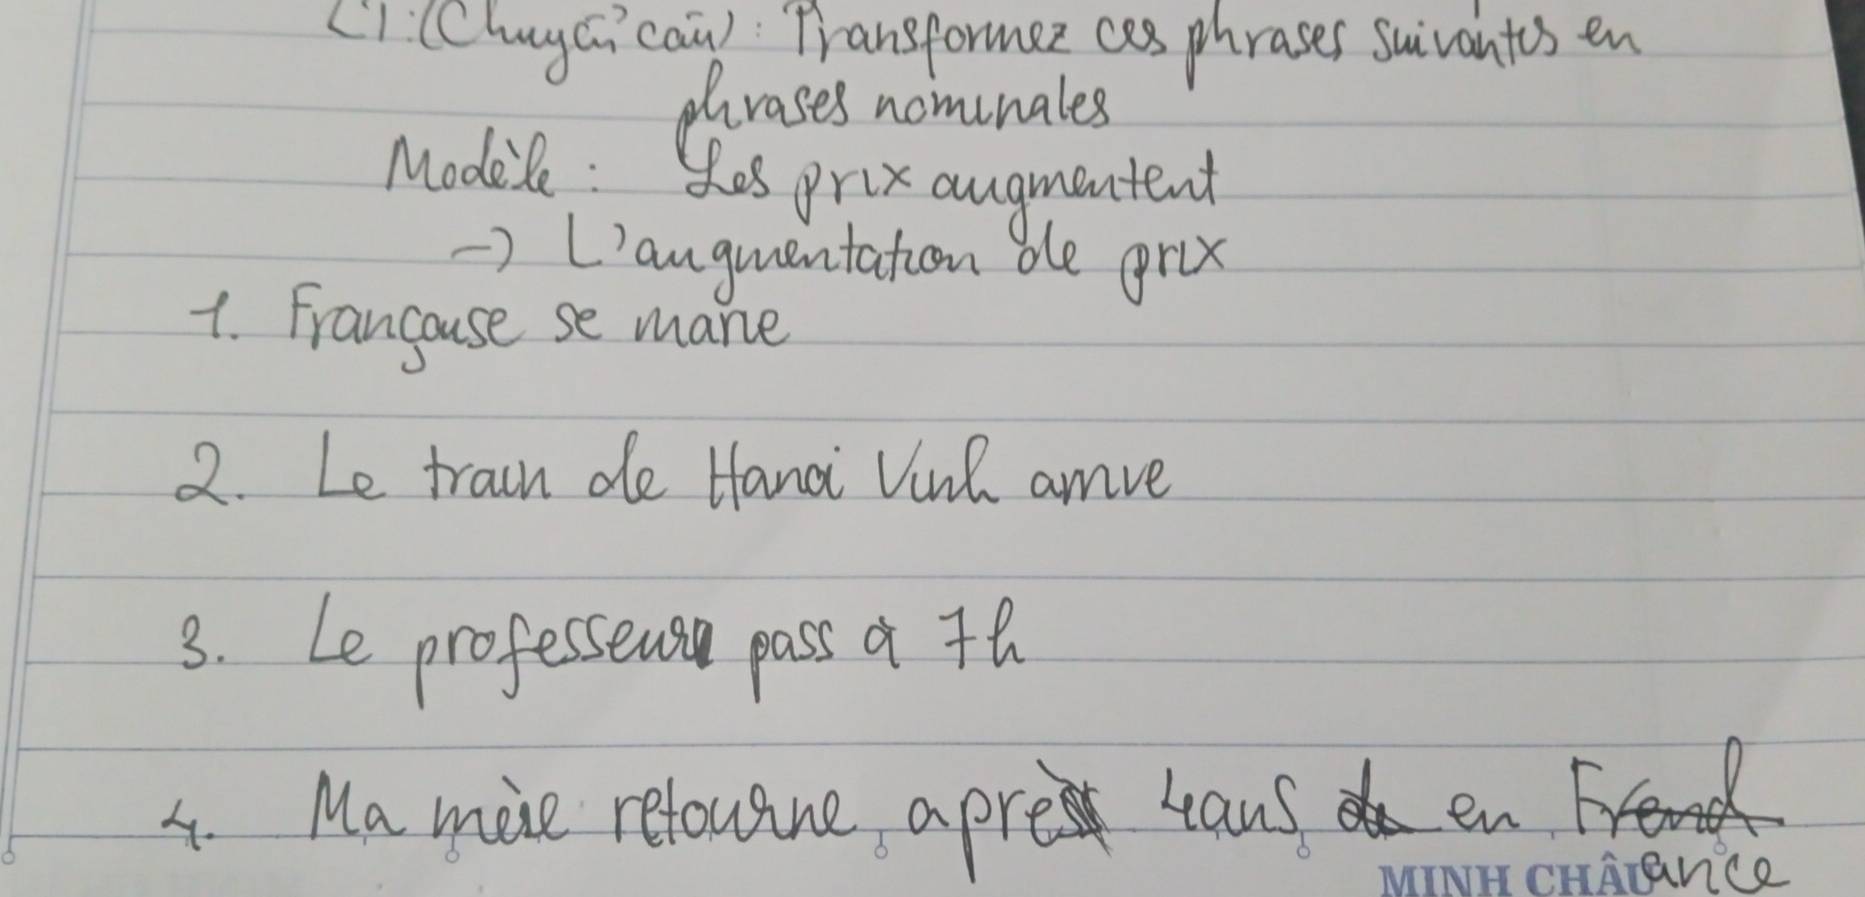 C1: (Chuyển câu): Transformez ces phrases suivantes en
phrases nominales
Modèle: Les prix augmentent
-> L'augmentation de prix
1. Françouse se marie
2. Le train de Hanoi Vinh arrive
3. Le professeur pass à 7h
4. Ma mère retourne après 4 ans en France
MINH CHÂU